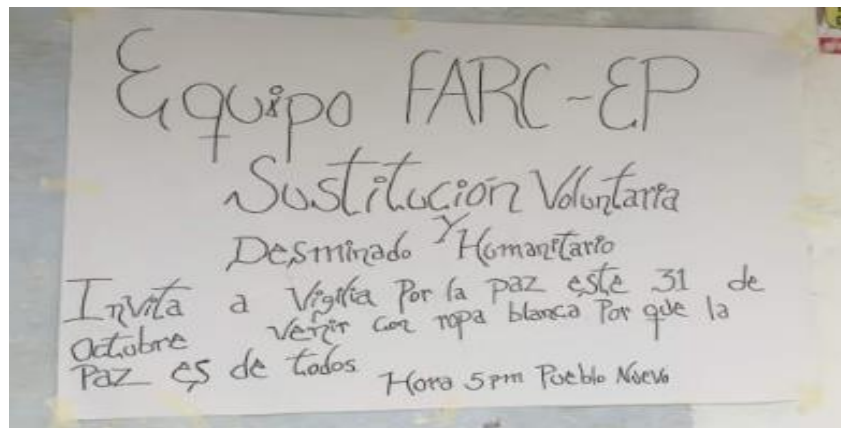 Equipo FARC-EP
Sustitución Voluntaria
Desminado Y Humanitario
Invita a Vigilia Por la paz este 31 de
Octubre venir con ropa blanca Por que la
Paz es de todos Hora 5 pm Pueblo Nuevo